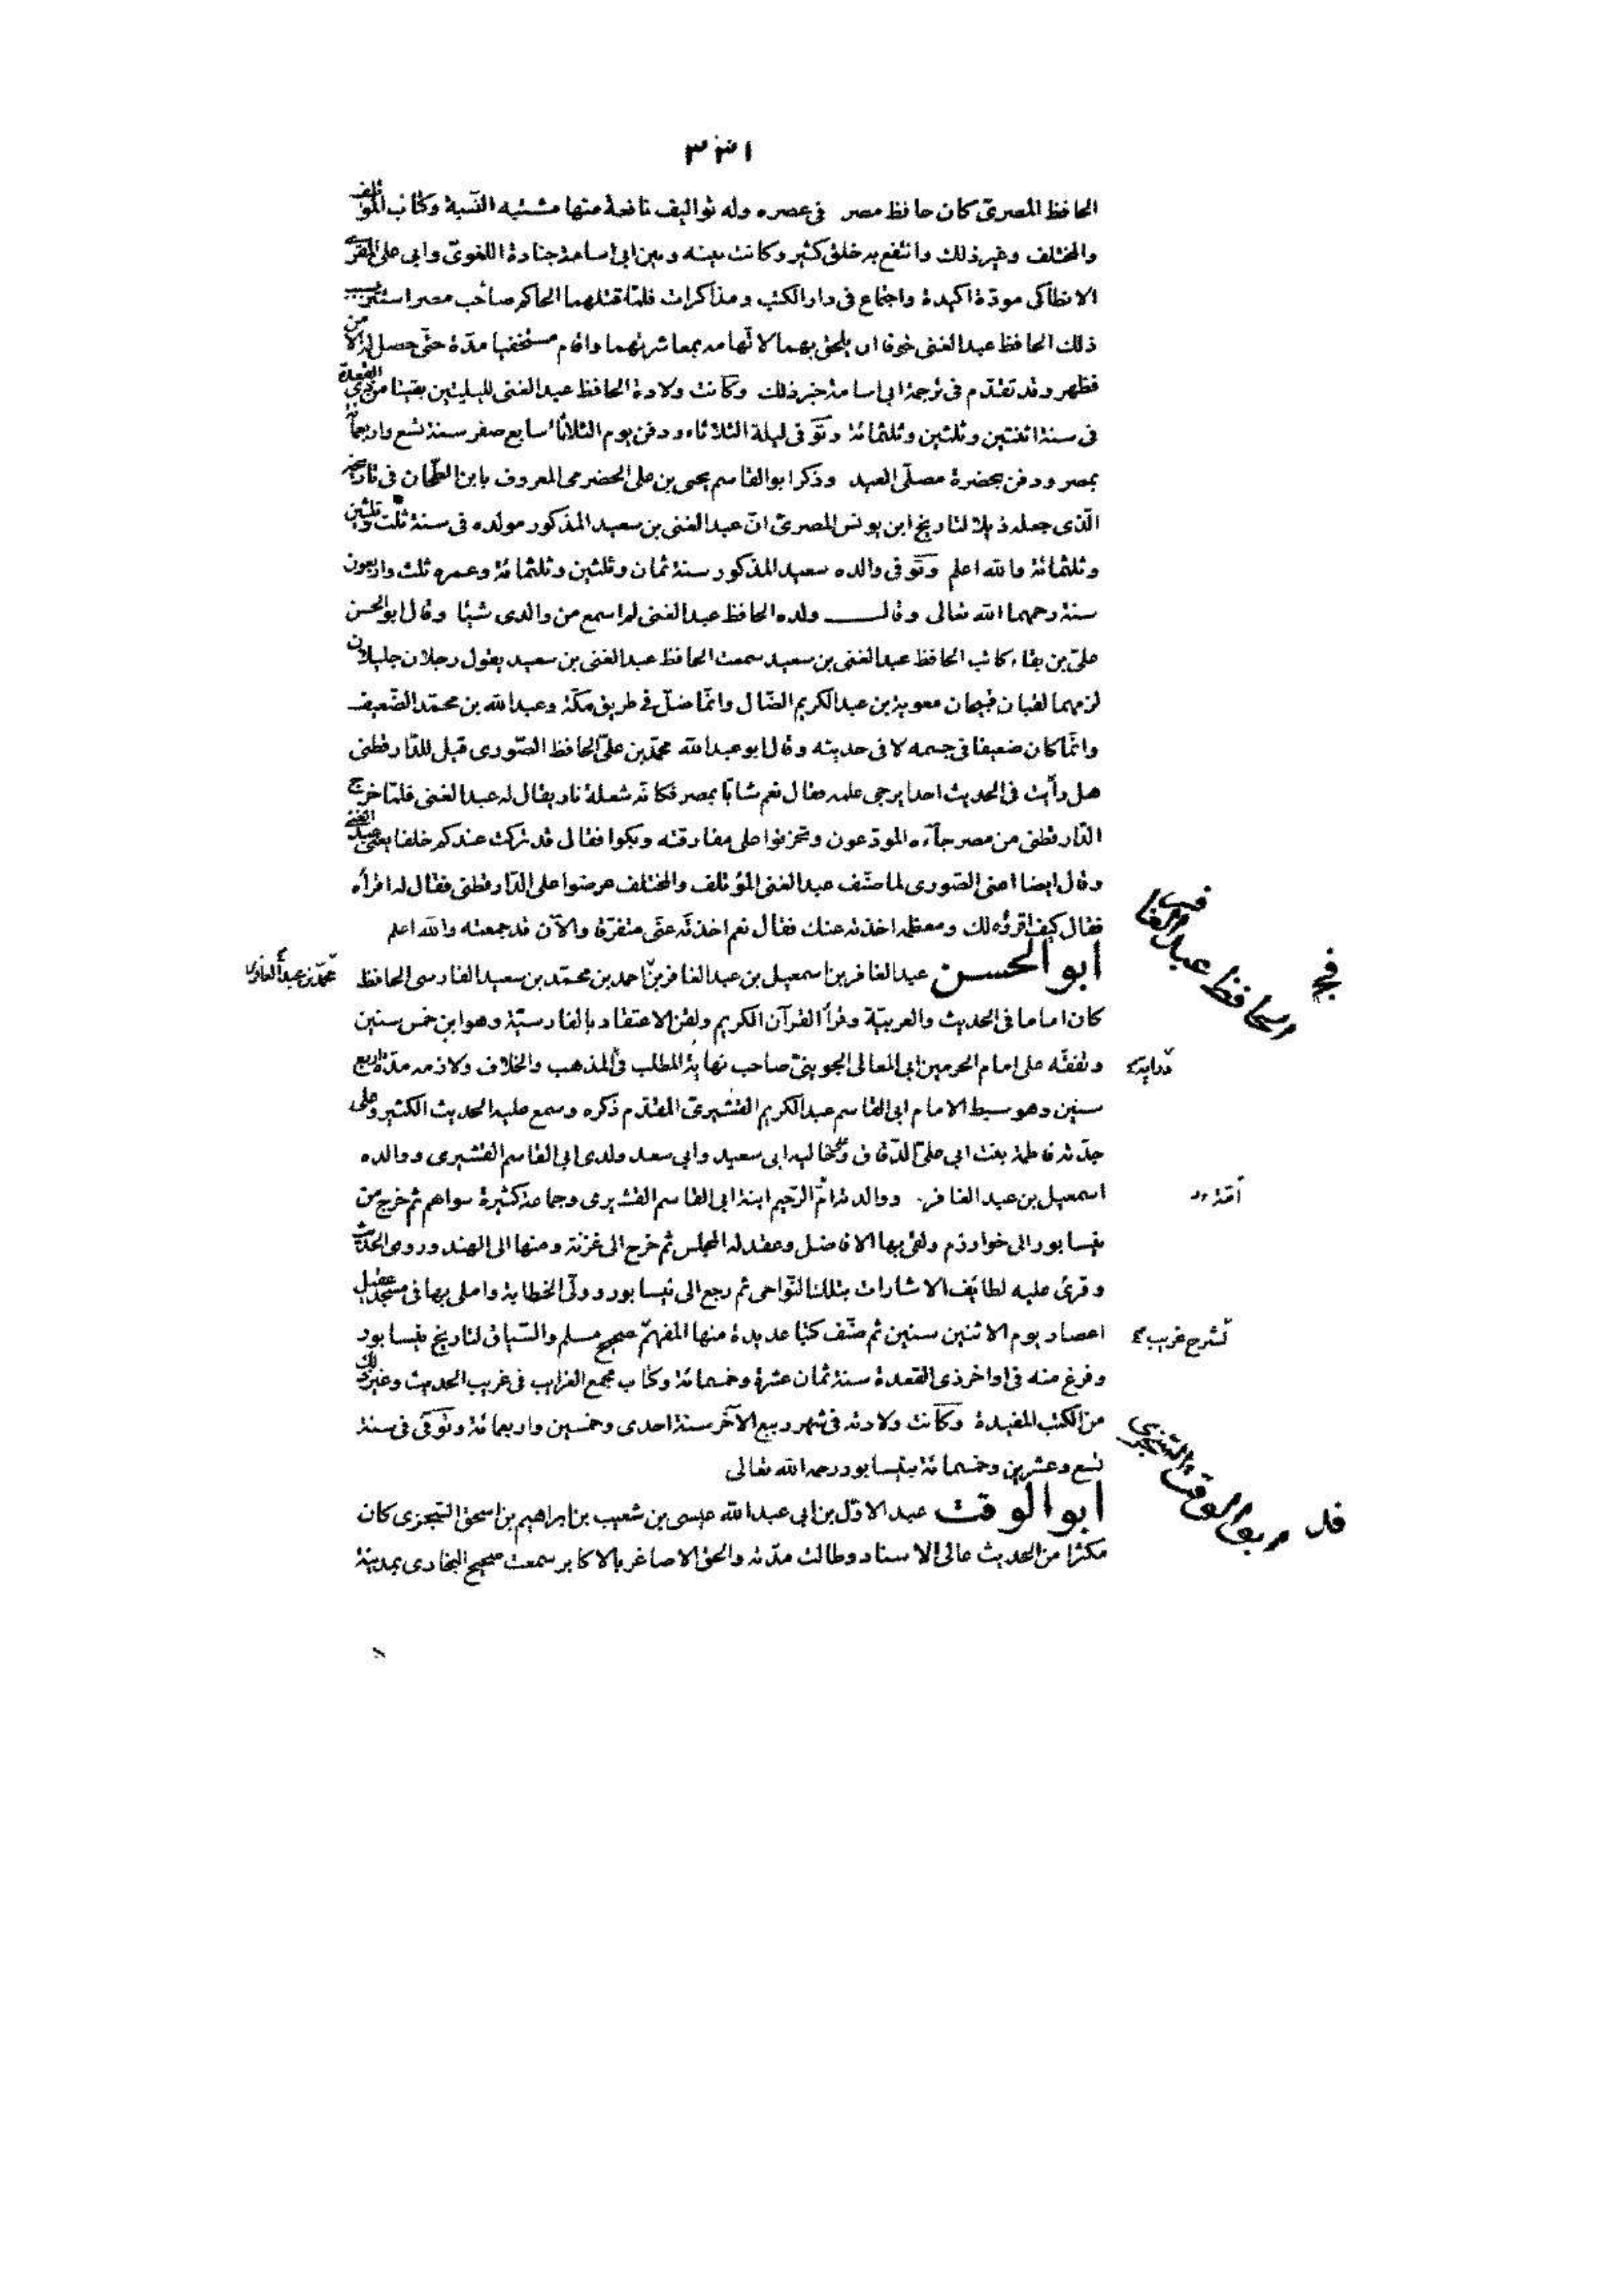 ٣٣١
الحافظ المصرىّ كان حافظ مصر فى عصره وله تواليف نافعة منها مشتبه النسبة وكتاب المؤتلف
والمختلف وغير ذلك وانتفع به خلق كثير وكانت بينه وبين ابى اسامة جنادة اللغوىّ وابى على المقرى
الانطاكى مودّة اكيدة واجتماع فى دار الكتب ومذاكرات فلمّا قتلهما الحاكم صاحب مصر استتر بسبب
ذلك الحافظ عبد الغنى خوفا ان يلحق بهما لاتّهامه بمعاشرتهما واقام مستخفيا مدّة حتّى حصل له الامن
فظهر وقد تقدّم فى ترجمة ابى اسامة خبر ذلك وكانت ولادة الحافظ عبد الغنى لليلتين بقيتا من ذى القعدة
فى سنة اثنتين وثلثين وثلثمائة وتوفى ليلة الثلاثاء ودفن يوم الثلاثاء سابع صفر سنة تسع واربعمائة
بمصر ودفن بحضرة مصلّى العيد وذكر ابو القاسم يحيى بن على الحضرمى المعروف بابن الطّحان فى تاريخه
الّذى جعله ذيلا لتاريخ ابن يونس المصرىّ انّ عبد الغنى بن سعيد المذكور مولده فى سنة ثلث وثلثين
وثلثمائة والله اعلم وتوفى والده سعيد المذكور سنة ثمان وثلثين وثلثمائة وعمره ثلث واربعون
سنة رحمهما الله تعالى وقال ولده الحافظ عبد الغنى لم اسمع من والدى شيئا وقال ابو الحسن
علىّ بن بقاء كاتب الحافظ عبد الغنى بن سعيد سمعت الحافظ عبد الغنى بن سعيد يقول رجلان جليلان
لزمهما لقبان قبيحان معوية بن عبد الكريم الضّال وانّما ضلّ فى طريق مكّة وعبد الله بن محمّد الضّعيف
وانّما كان ضعيفا فى جسمه لا فى حديثه وقال ابو عبد الله محمّد بن علىّ الحافظ الصّورى قيل للدّارقطنى
هل رأيت فى الحديث احدا يرجى علمه فقال نعم شابّا بمصر فكانّه شعلة نار يقال له عبد الغنى فلمّا خرج
الدّارقطنى من مصر جآءه المودّعون وتحزنوا على مفارقته وبكوا فقال قد تركت عندكم خلفا يعنى عبد الغنى
وقال ايضا اعنى الصّورى لما صنّف عبد الغنى المؤتلف والمختلف عرضوا على الدّارقطنى فقال له اقرأه
فقال كيف اقرؤه لك ومعظمه اخذته عنك فقال نعم اخذته عنّى متفرّقا والآن قد جمعته والله اعلم
فى الحافظ عبد الغافر
أبو الحسن عبد الغافر بن اسمعيل بن عبد الغافر بن احمد بن محمّد بن سعيد الفارسى الحافظ
محمّد بن عبد الغافر
كان اماما فى الحديث والعربيّة وقرأ القرآن الكريم ولقن الاعتقاد بالفارسيّة وهو ابن خمس سنين
وتفقّه على امام الحرمين ابى المعالى الجوينىّ صاحب نهاية المطلب فى المذهب والخلاف ولازمه مدّة اربع
دراية
سنين وهو سبط الامام ابى القاسم عبد الكريم القشيرىّ المقدّم ذكره وسمع عليه الحديث الكثير وعلى
جدّته فاطمة بنت ابى علىّ الدّقاق وعلى خاليه ابى سعيد وابى سعد ولدى ابى القاسم القشيرى ووالده
اسمعيل بن عبد الغافر ووالدته امّ الرّحيم ابنة ابى القاسم القشيرى وجماعة كثيرة سواهم ثم خرج من
أمة
نيسابور الى خوارزم ولقى بها الافاضل وعقد له المجلس ثم خرج الى غزنة ومنها الى الهند وروى الحديث
وقرئ عليه لطائف الاشارات بتلك النّواحى ثم رجع الى نيسابور وولّى الخطابة واملى بها فى مسجد عقيل
اعصار يوم الاثنين سنين ثم صنّف كتبا عديدة منها المفهم صحيح مسلم والسّياق لتاريخ نيسابور
لشرح غريب
وفرغ منه فى اواخر ذى القعدة سنة ثمان عشرة وخمسمائة وكتاب مجمع الغرايب فى غريب الحديث وغير ذلك
من الكتب المفيدة وكانت ولادته فى شهر ربيع الآخر سنة احدى وخمسين واربعمائة وتوفّى فى سنة
تسع وعشرين وخمسمائة بنيسابور رحمه الله تعالى
ابو الوقت السجزى
أبو الوقت عبد الاوّل بن ابى عبد الله عيسى بن شعيب بن ابراهيم بن اسحق السّجزى كان
مكثرا من الحديث عالى الاسناد وطالت مدّته والحق الاصاغر بالاكابر سمعت صحيح البخارى بمدينة